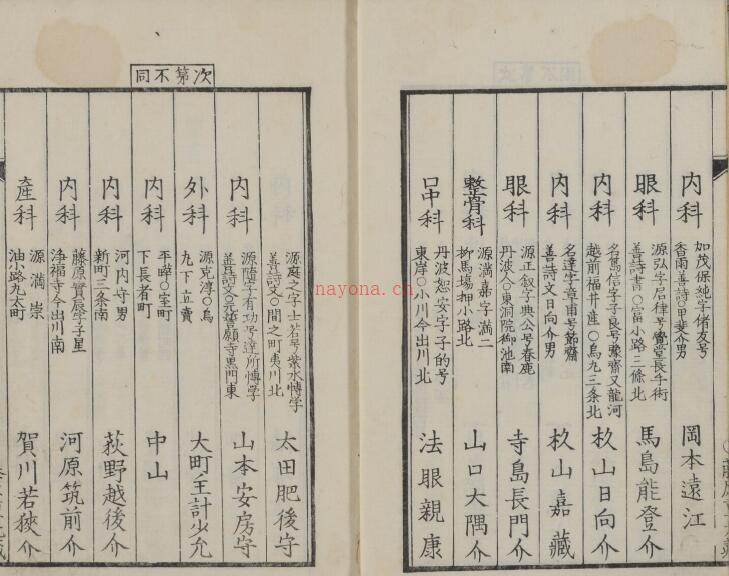 内科
加茂保純字偖友号
香雨善詩〇甲斐介男
岡本遠江介
眼科
源弘字后律号覺堂長手術
善詩書〇富小路三條北
馬島能登介
内科
名篤信字子良号黎齋又龍河
越前福井産〇烏丸三条北
杦山日向介
内科
名達字章甫号節齋
善詩文日向介男
杦山嘉藏
眼科
源正叙字典公号春鹿
丹波人〇東洞院御池南
寺島長門介
整骨科
源満嘉字満二
柳馬場押小路北
山口大隅介
口中科
丹波恕安字子的号
東岸〇小川今出川北
法眼親康
次第不同
内科
源庭之字士若号紫水愽学
善詩文〇間之町夷川北
太田肥後守
内科
源隨字有功号達所愽学
善詩文〇元誓願寺黒門東
山本安房守
外科
源克淳〇烏
丸下立賣
大町主計少允
内科
平暭〇室町
下長者町
中山
内科
河内守男
新町三条南
荻野越後介
内科
藤原實辰字子星
浄福寺今出川南
河原筑前介
産科
源満崇
油小路丸太町
賀川若狹介
nayona.cn